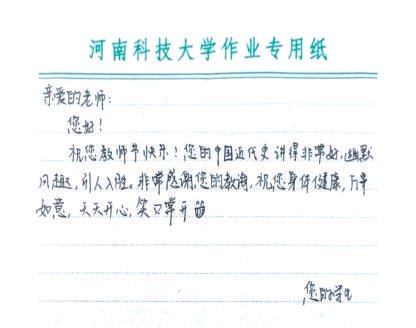 河南科技大学作业专用纸
亲爱的老师：
您好！
祝您教师节快乐！您的中国近代史讲得非常好，幽默
风趣，引人入胜。非常感谢您的教诲，祝您身体健康，万事
如意，天天开心，笑口常开
您的学生